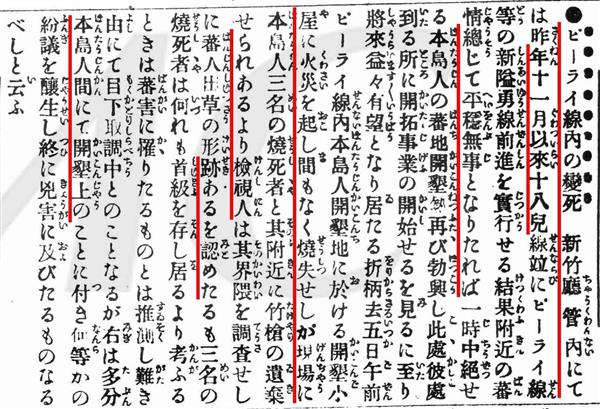 ●ピーライ線內の變死　新竹廳管內にて
は昨年十一月以來十八兒線竝にピーライ線
等の新隘勇線前進を實行せる結果附近の蕃
情總じて平穩無事となりたれば一時中絕せ
る本島人の蕃地開墾熱再び勃興し此處彼處
到る所に開拓事業の開始せるを見るに至り
將來益々有望となり居たる折柄去五日午前
ピーライ線內本島人開墾地に於ける開墾小
屋に火災を起し間もなく燒失せしが現場に
本島人三名の燒死者と其附近に竹槍の遺棄
せられあるより檢視人は其界隈を調査せし
に蕃人出草の形跡あるを認めたるも三名の
燒死者は何れも首級を存し居るより考ふる
ときは蕃害に罹りたるものとは推測し難き
由にて目下取調中とのことなるが右は多分
本島人間にて開墾上のことに付き何等かの
紛議を釀生し終に兇害に及びたるものなる
べしと云ふ